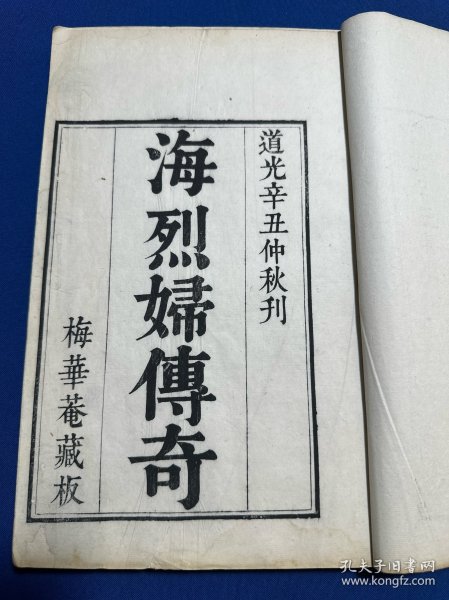 道光辛丑仲秋刊
海烈婦傳奇
梅華菴藏板
孔夫子旧书网
www.kongfz.com